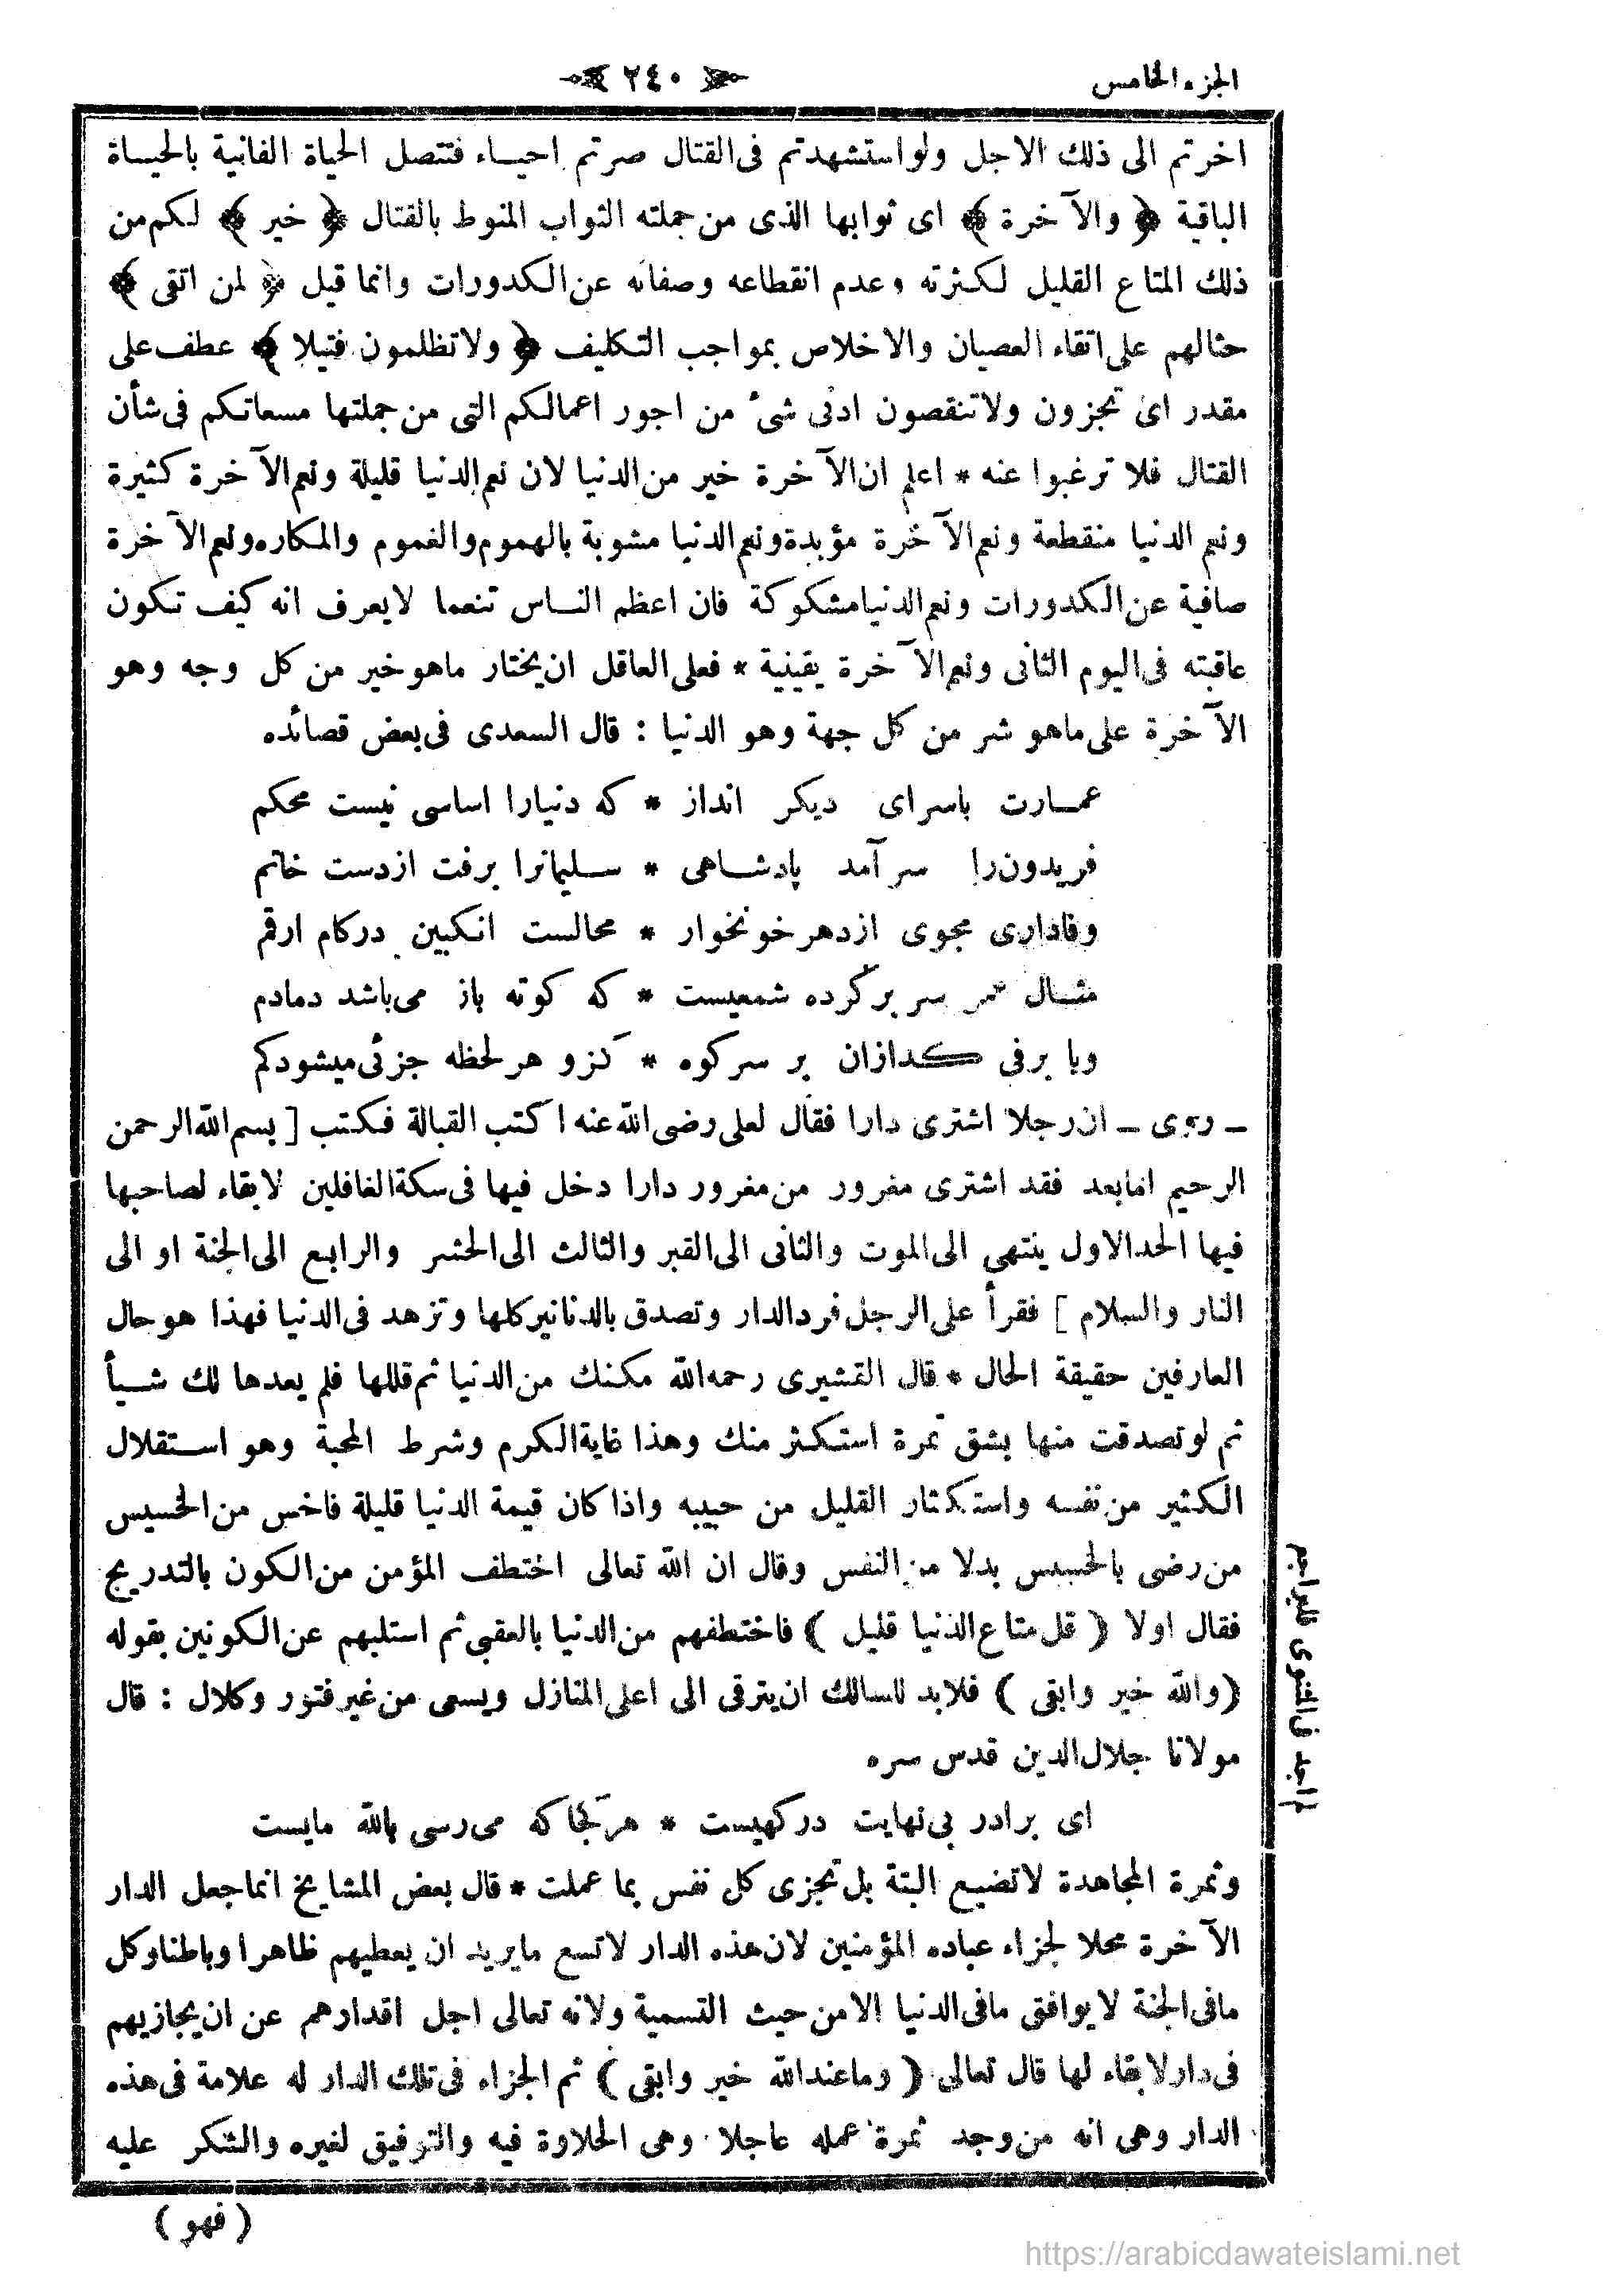 الجزء الخامس
٢٤٠
اخرتم الى ذلك الاجل ولو استشهدتم فى القتال صرتم احياء فتتصل الحياة الفانية بالحياة
الباقية ﴿ والآخرة ﴾ اى ثوابها الذى من جملته الثواب المنوط بالقتال ﴿ خير ﴾ لكم من
ذلك المتاع القليل لكثرته وعدم انقطاعه وصفائه عن الكدورات وانما قيل ﴿ لمن اتقى ﴾
حثالهم على اتقاء العصيان والاخلاص بمواجب التكليف ﴿ ولا تظلمون فتيلا ﴾ عطف على
مقدر اى تجزون ولا تنقصون ادنى شئ من اجور اعمالكم التى من جملتها مسعاتكم فى شأن
القتال فلا ترغبوا عنه * اعلم ان الآخرة خير من الدنيا لان نعم الدنيا قليلة ونعم الآخرة كثيرة
ونعم الدنيا منقطعة ونعم الآخرة مؤبدة ونعم الدنيا مشوبة بالهموم والغموم والمكاره ونعم الآخرة
صافية عن الكدورات ونعم الدنيا مشكوكة فان اعظم الناس تنعما لا يعرف انه كيف تكون
عاقبته فى اليوم الثانى ونعم الآخرة يقينية * فعلى العاقل ان يختار ما هو خير من كل وجه وهو
الآخرة على ما هو شر من كل جهة وهو الدنيا : قال السعدى فى بعض قصائده
عمارت باسراى ديكر انداز * كه دنيارا اساسى نيست محكم
فريدون را سر آمد پادشاهى * سليمانرا برفت ازدست خاتم
وفادارى مجوى ازدهر خونخوار * محالست انكبين دركام ارقم
مثال عمر سر بركرده شمعيست * كه كوته باز مى باشد دمادم
ويا برفى كدازان بر سر كوه * كزو هر لحظه جزئى ميشود كم
ـ روى ـ ان رجلا اشترى دارا فقال لعلى رضى الله عنه اكتب القبالة فكتب [ بسم الله الرحمن
الرحيم اما بعد فقد اشترى مغرور من مغرور دارا دخل فيها فى سكة الغافلين لا بقاء لصاحبها
فيها الحد الاول ينتهى الى الموت والثانى الى القبر والثالث الى الحشر والرابع الى الجنة او الى
النار والسلام ] فقرأ على الرجل فرد الدار وتصدق بالدنانير كلها وتزهد فى الدنيا فهذا هو حال
العارفين حقيقة الحال * قال القشيرى رحمه الله مكنك من الدنيا ثم قللها فلم يعدها لك شيأ
ثم لو تصدقت منها بشق تمرة استكثر منك وهذا غاية الكرم وشرط المحبة وهو استقلال
الكثير من نفسه واستكثار القليل من حبيبه واذا كان قيمة الدنيا قليلة فاخس من الخسيس
من رضى بالخسيس بدلا من النفس وقال ان الله تعالى اختطف المؤمن من الكون بالتدريج
فقال اولا ( قل متاع الدنيا قليل ) فاختطفهم من الدنيا بالعقبى ثم استلبهم عن الكونين بقوله
( والله خير وابقى ) فلابد للسالك ان يترقى الى اعلى المنازل ويسعى من غير فتور وكلال : قال
مولانا جلال الدين قدس سره
اى برادر بى نهايت دركهيست * هر كجا كه مى رسى بالله مايست
وثمرة المجاهدة لا تضيع البتة بل تجزى كل نفس بما عملت * قال بعض المشايخ انما جعل الدار
الآخرة محلا لجزاء عباده المؤمنين لان هذه الدار لا تسع ما يريد ان يعطيهم ظاهرا وباطنا وكل
ما فى الجنة لا يوافق ما فى الدنيا الا من حيث التسمية ولانه تعالى اجل اقدارهم عن ان يجازيهم
فى دار لا بقاء لها قال تعالى ( وما عند الله خير وابقى ) ثم الجزاء فى تلك الدار له علامة فى هذه
الدار وهى انه من وجد ثمرة عمله عاجلا وهى الحلاوة فيه والتوفيق لغيره والشكر عليه
( فهو )
لم اجد فى المثنوى فليراجع
https://arabicdawateislami.net